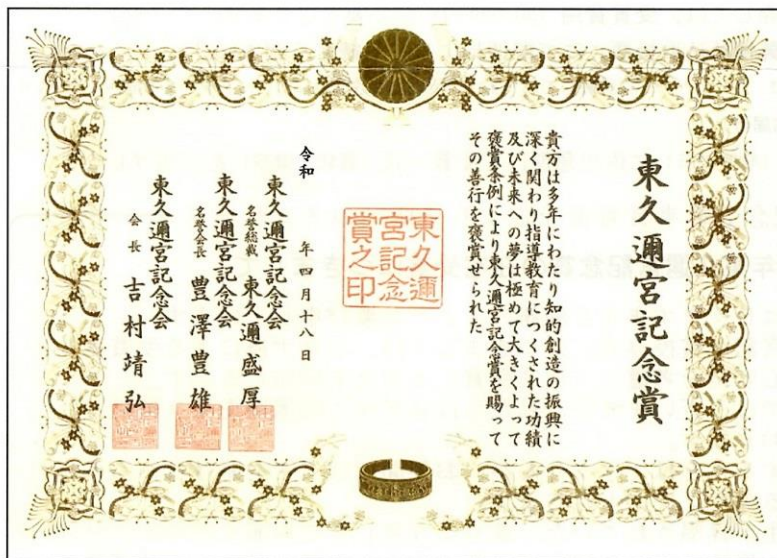 東久邇宮記念賞
貴方は多年にわたり知的創造の振興に
深く関わり指導教育につくされた功績
及び未来への夢は極めて大きくよって
褒賞条例により東久邇宮記念賞を賜って
その善行を褒賞せられた
東久邇
宮記念
賞之印
令和 年四月十八日
東久邇宮記念会
名誉総裁 東久邇盛厚
東久邇宮記念会
名誉会長 豊澤豊雄
東久邇宮記念会
会長 吉村靖弘